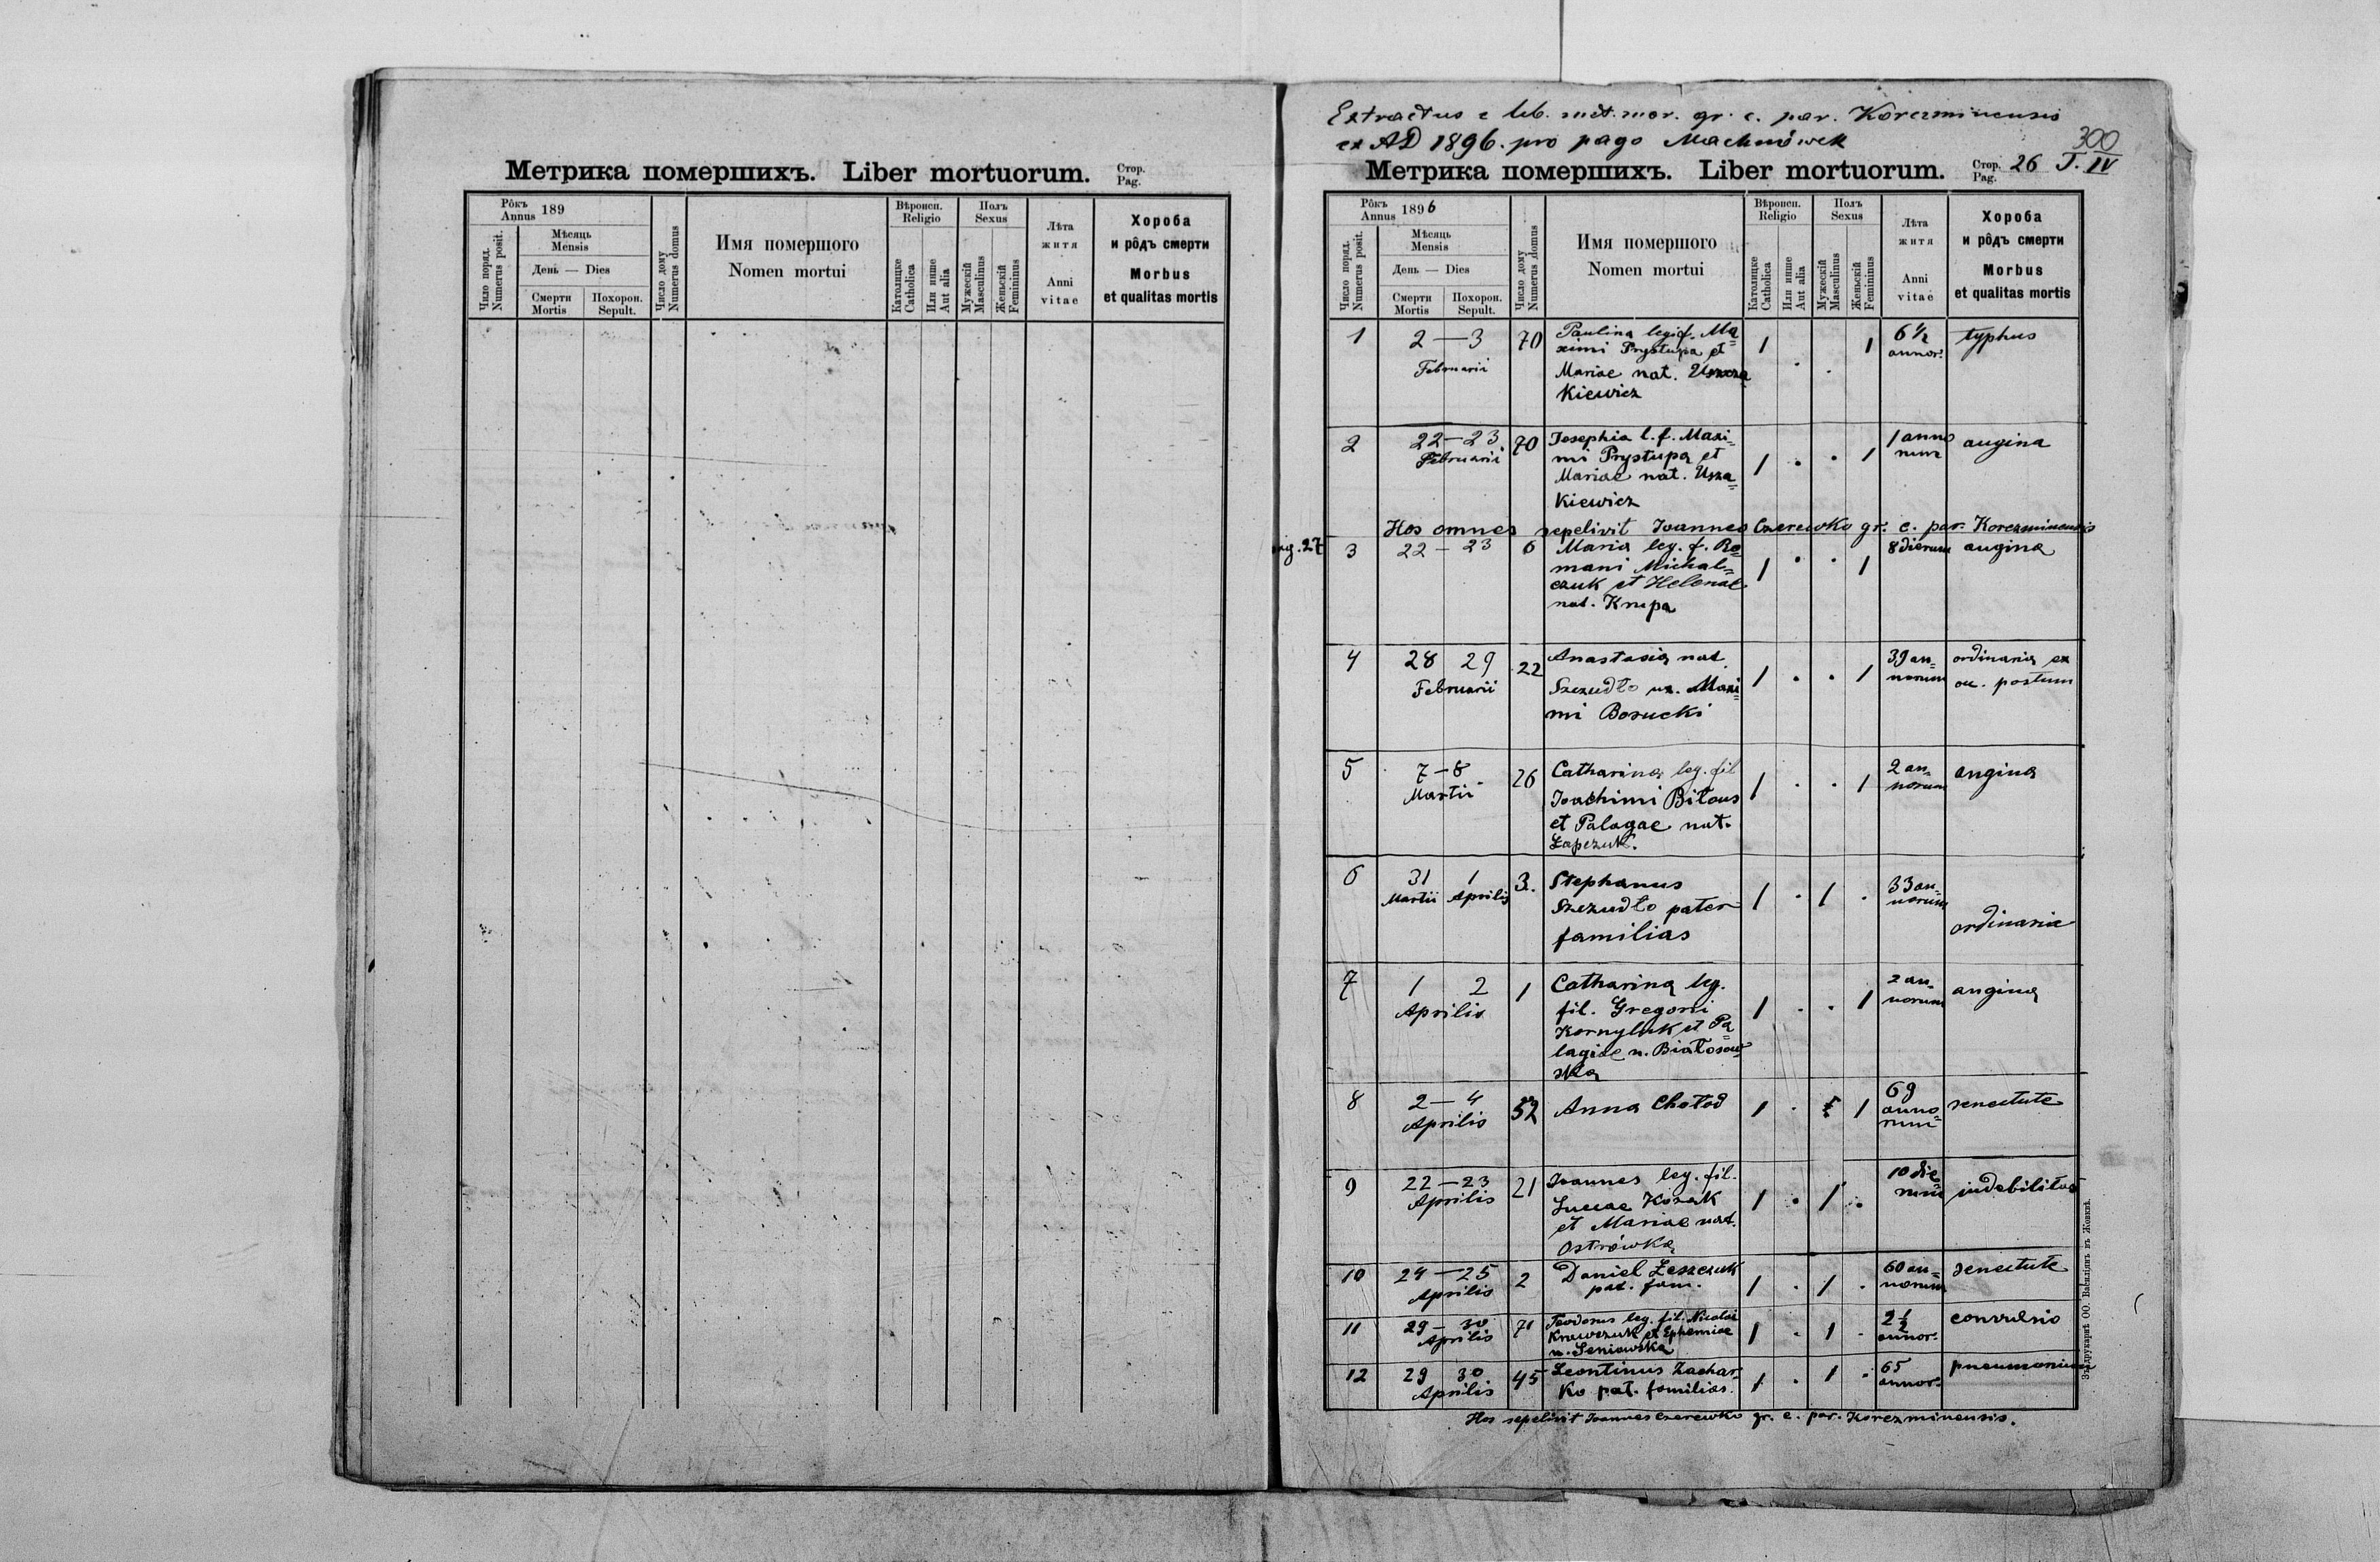 Метрика помершихъ. Liber mortuorum. Стор. Pag.
Рôкъ Annus 189
Мѣсяць Mensis
День — Dies
Смерти Mortis
Похорон. Sepult.
Число поряд. Numerus posit.
Число дому Numerus domus
Имя помершого
Nomen mortui
Вѣроисп. Religio
Католицке Catholica
Или инше Aut alia
Полъ Sexus
Мужескій Masculinus
Женьскій Femininus
Лѣта житя
Anni vitae
Хороба
и рôдъ смерти
Morbus
et qualitas mortis
Extractus e lib. met. mor. gr. c. par. Korczminensis
ex AD 1896. pro pago Machnówek
300
Метрика помершихъ. Liber mortuorum. Стор. Pag. 26 T. IV
Рôкъ Annus 1896
Мѣсяць Mensis
День — Dies
Смерти Mortis
Похорон. Sepult.
Число поряд. Numerus posit.
Число дому Numerus domus
Имя помершого
Nomen mortui
Вѣроисп. Religio
Католицке Catholica
Или инше Aut alia
Полъ Sexus
Мужескій Masculinus
Женьскій Femininus
Лѣта житя
Anni vitae
Хороба
и рôдъ смерти
Morbus
et qualitas mortis
1 2 — 3 70 Paulina leg. f. Ma= 1 . . 1 6 1/2 typhus
Februarii ximi Prystupa et annor.
Mariae nat. Uszcza
kiewicz
2 22 — 23 70 Josephia l. f. Maxi= 1 . . 1 1 anno angina
Februarii mi Prystupa et num
Mariae nat. Usza=
kiewicz
Hos omnes sepelivit Joannes Czerewko gr. c. par. Korczminensis
pag. 27 3 22 — 23 6 Maria leg. f. Ro= 1 . . 1 8 dierum angina
mani Michal=
czuk et Helenae
nat. Krupa
4 28 29 22 Anastasia nat. 1 . . 1 39 an= ordinaria ex
Februarii Szczudło ux. Maxi= norum oc. partum
mi Borucki
5 7 — 8 26 Catharina leg. fil 1 . . 1 2 an= angina
Martii Joachimi Biłous norum
et Palagae nat.
Łapczuk.
6 31 1 3. Stephanus 1 . 1 . 33 an=
Martii Aprilis Szczudło pater norum
familias ordinaria
7 1 2 1 Catharina leg. 1 . . 1 2 an= angina
Aprilis fil. Gregorii norum
Kornyluk et Pa=
lagiae n. Białosow=
ska
8 2 — 4 52 Anna Chołod 1 . 1 69 senectute
Aprilis anno=
rum
9 22 — 23 21 Joannes leg. fil. 1 . 1 . 10 die= indebilitas
Aprilis Luccae Kozak rum
et Mariae nat.
Ostrówka
10 24 — 25 2 Daniel Leszczuk 1 . 1 . 60 an= senectute
Aprilis pat. fam. norum
11 29 — 30 71 Teodorus leg. fil. Nicolai 1 . 1 . 2 1/2 convulsio
Aprilis Krawczuk et Ephemiae annor.
n. Seniowska
12 29 30 45 Leontinus Zachar= 1 . 1 . 65 pneumonium
Aprilis ko pat. familias. annor.
Hos sepelivit Joannes Czerewko gr. c. par. Korczminensis.
Зъ друкарнѣ ОО. Василіянъ въ Жовквѣ.